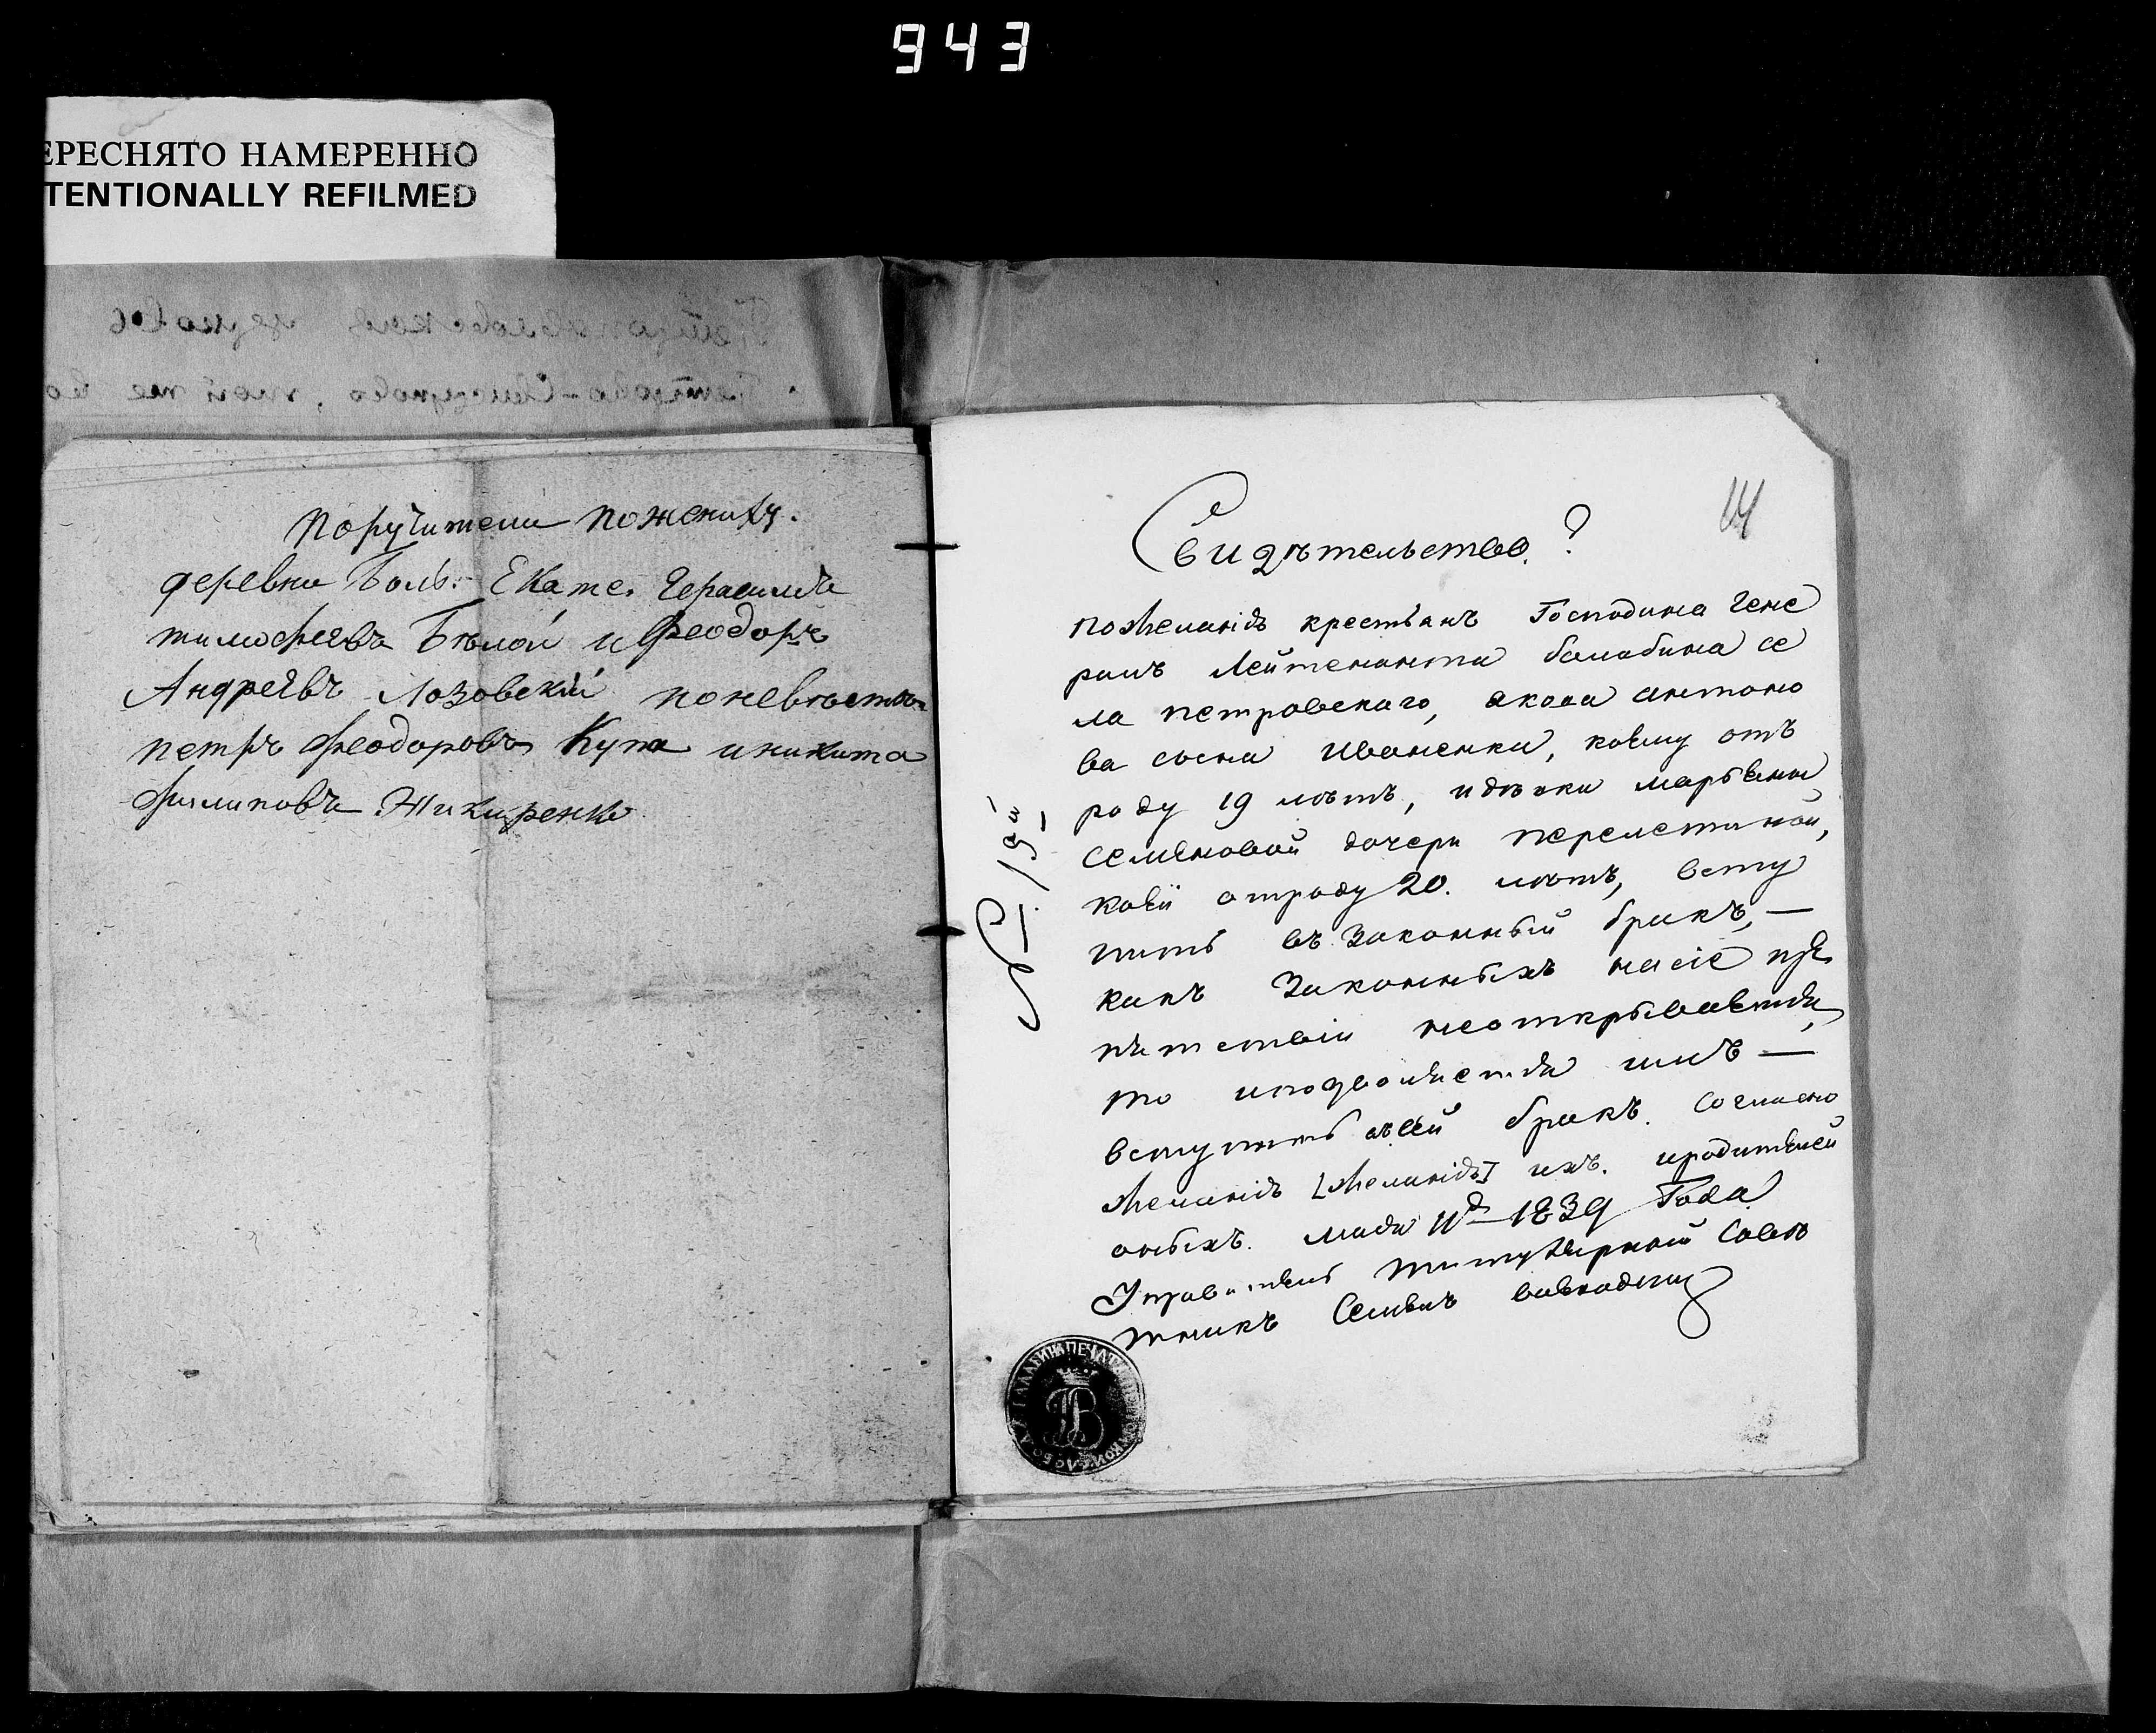 943
ЕРЕСНЯТО НАМЕРЕННО
TENTIONALLY REFILMED
Поручители пожениху.
деревни Боль: Екате. Герасимъ
тимофеевъ Бѣлой и Феодоръ
Андреевъ Лозовскій поневѣстѣ
петръ Феодоровъ Купа иникита
Филиповъ Жикиренко
14
Свидѣтельство.?
пожеланію крестьянъ Господина Гене
ралъ Лейтенанта балабина се
ла петровскаго, якова антоно
ва сына Иваненки, коему отъ
роду 19 лѣтъ, идѣвки марьины
семеновой дочери
коей отроду 20. лѣтъ, всту
пить въ законный бракъ, —
какъ Законныхъ насіе пре
пятствій неоткрывается,
то ипозволяется имъ —
вступить всей бракъ. Согласно
желанію [желанію] ихъ. иродителей
оныхъ. маія 11д 1839 Года
Управитель титулярной Совѣ
тникъ Семенъ
№. 19й